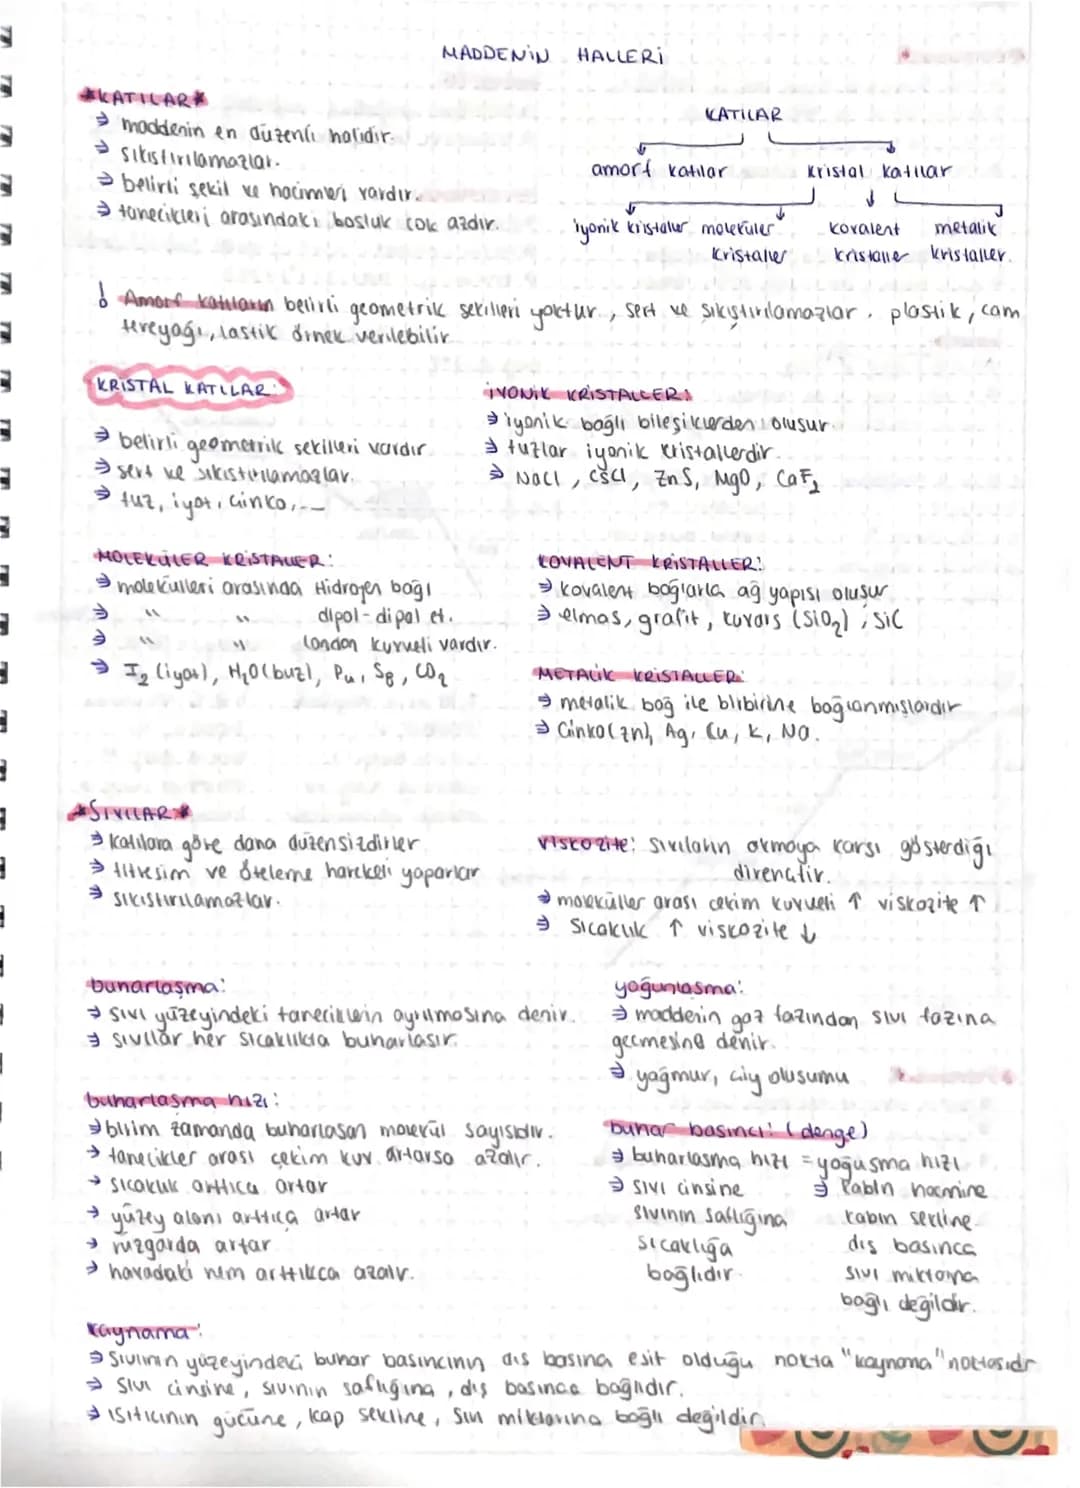 MADDENİN HALLERİ
*KATILAR*
→ maddenin en düzenli halidir.
→ sıkıştırılamazlar.
→ belirli şekil ve hacimleri vardır.
→ tanecikleri arasındaki boşluk çok azdır.
KATILAR
amorf katılar kristal katılar
iyonik kristaller moleküler kristaller kovalent kristaller metalik kristaller.
! Amorf katıların belirli geometrik şekilleri yoktur, sert ve sıkıştırılamazlar. plastik, cam
tereyağı, lastik örnek verilebilir
KRİSTAL KATILAR:
→ belirli geometrik şekilleri vardır
→ sert ve sıkıştırılamazlar.
→ tuz, iyot, çinko, ---
İYONİK KRİSTALLER:
→ iyonik bağlı bileşiklerden oluşur.
→ tuzlar iyonik kristallerdir.
→ NaCl, CsCl, ZnS, MgO, CaF₂
MOLEKÜLER KRİSTALLER:
→ molekülleri arasında Hidrojen bağı
→ " " dipol-dipol et.
→ " " London kuvveti vardır.
→ I₂ (iyot), H₂O (buz), P₄, S₈, CO₂
KOVALENT KRİSTALLER:
→ kovalent bağlarla ağ yapısı oluşur
→ elmas, grafit, kuvars (SiO₂), SiC
METALİK KRİSTALLER:
→ metalik bağ ile birbirine bağlanmışlardır
→ Çinko (Zn), Ag, Cu, K, Na.
*SIVILAR*
→ katılara göre daha düzensizdirler
→ titreşim ve öteleme hareketi yaparlar
→ sıkıştırılamazlar.
viskozite: sıvıların akmaya karşı gösterdiği
dirençtir.
→ moleküller arası çekim kuvveti ↑ viskozite ↑
→ Sıcaklık ↑ viskozite ↓
buharlaşma:
→ sıvı yüzeyindeki taneciklerin ayrılmasına denir.
→ sıvılar her sıcaklıkta buharlaşır.
yoğunlaşma:
→ maddenin gaz fazından sıvı fazına
geçmesine denir.
→ yağmur, çiy oluşumu
buharlaşma hızı:
→ birim zamanda buharlaşan molekül sayısıdır.
→ tanecikler arası çekim kuv. artarsa azalır.
→ sıcaklık arttıkça artar
→ yüzey alanı arttıkça artar
→ rüzgarda artar
→ havadaki nem arttıkca azalır.
buhar basıncı: (denge)
→ buharlaşma hızı = yoğuşma hızı
→ sıvı cinsine
sıvının saflığına
sıcaklığa
bağlıdır.
→ Kabın hacmine
kabın şekline
dış basınca
sıvı miktarına
bağlı değildir.
kaynama:
→ Sıvının yüzeyindeki buhar basıncının dış basınca eşit olduğu nokta "kaynama" noktasıdır
→ sıvı cinsine, sıvının saflığına, dış basınca bağlıdır.
→ ısıtıcının gücüne, kap şekline, sıvı miktarına bağlı değildir.